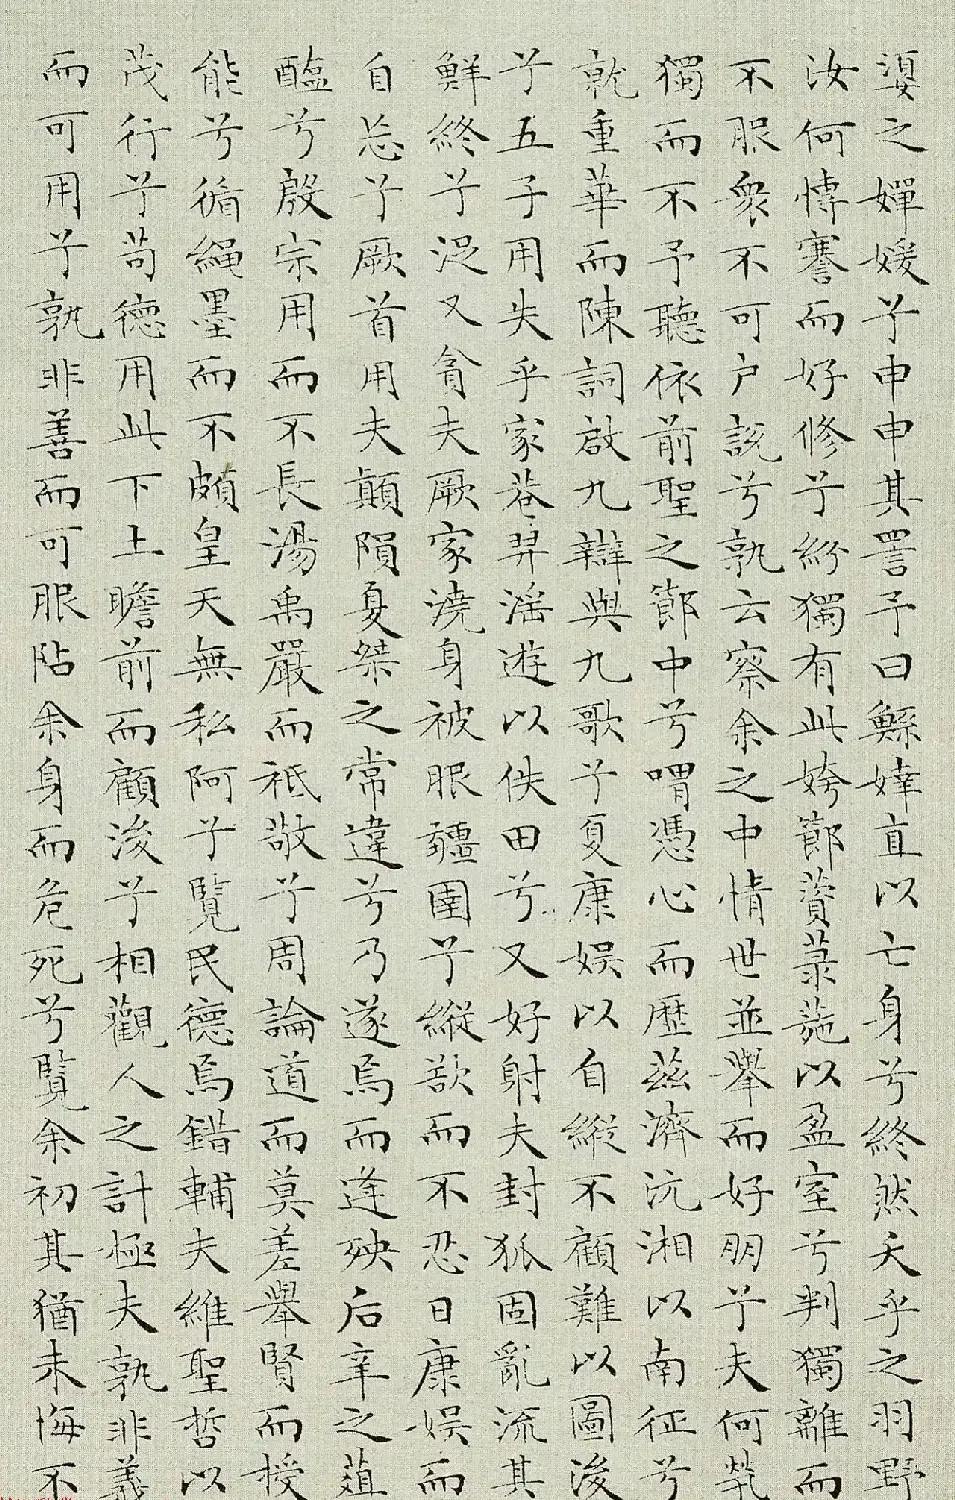 嬃之嬋媛兮申申其詈予曰鯀婞直以亡身兮終然夭乎之羽野
汝何博謇而好修兮紛獨有此姱節薋菉葹以盈室兮判獨離而
不服衆不可户說兮孰云察余之中情世並舉而好朋兮夫何煢
獨而不予聽依前聖之節中兮喟憑心而歷茲濟沅湘以南征兮
就重華而陳詞啟九辯與九歌兮夏康娛以自縱不顧難以圖後
兮五子用失乎家巷羿淫遊以佚田兮又好射夫封狐固亂流其
鮮終兮浞又貪夫厥家澆身被服疆圉兮縱欲而不忍日康娛而
自忘兮厥首用夫顛隕夏桀之常違兮乃遂焉而逢殃后辛之菹
醢兮殷宗用而不長湯禹嚴而祗敬兮周論道而莫差舉賢而授
能兮循繩墨而不頗皇天無私阿兮覽民德焉錯輔夫維聖哲以
茂行兮苟德用此下上瞻前而顧後兮相觀人之計極夫孰非義
而可用兮孰非善而可服阽余身而危死兮覽余初其猶未悔不